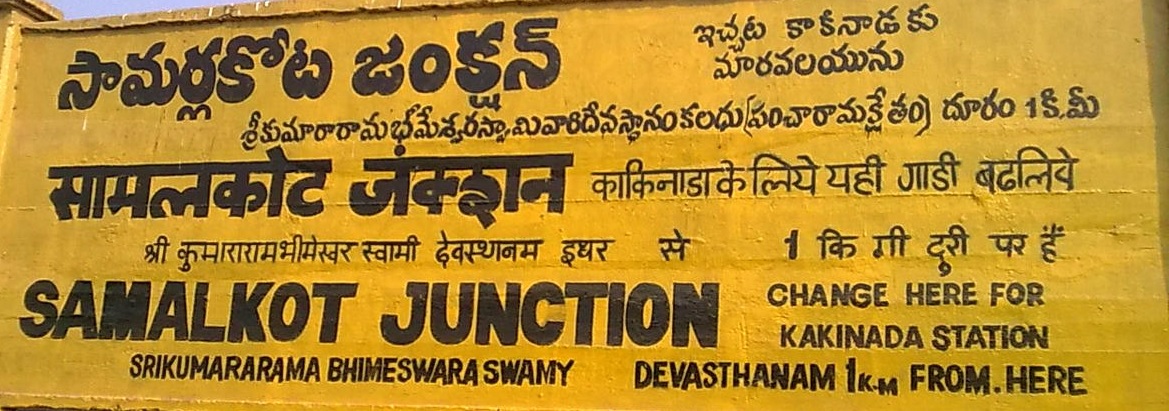 సామర్లకోట జంక్షన్
ఇచ్చట కాకినాడకు
మారవలయును
శ్రీకుమారారామభీమేశ్వరస్వామివారిదేవస్థానంకలదు(పంచారామక్షేతం) దూరం 1కి.మీ
सामलकोट जंक्शन काकिनाडा के लिये यही गाडी बढलिये
श्री कुमारारामभीमेस्वर स्वामी देवस्थनम इधर से 1 कि मी दूरी पर हैं
SAMALKOT JUNCTION
CHANGE HERE FOR
KAKINADA STATION
SRIKUMARARAMA BHIMESWARA SWAMY DEVASTHANAM 1K.M FROM.HERE